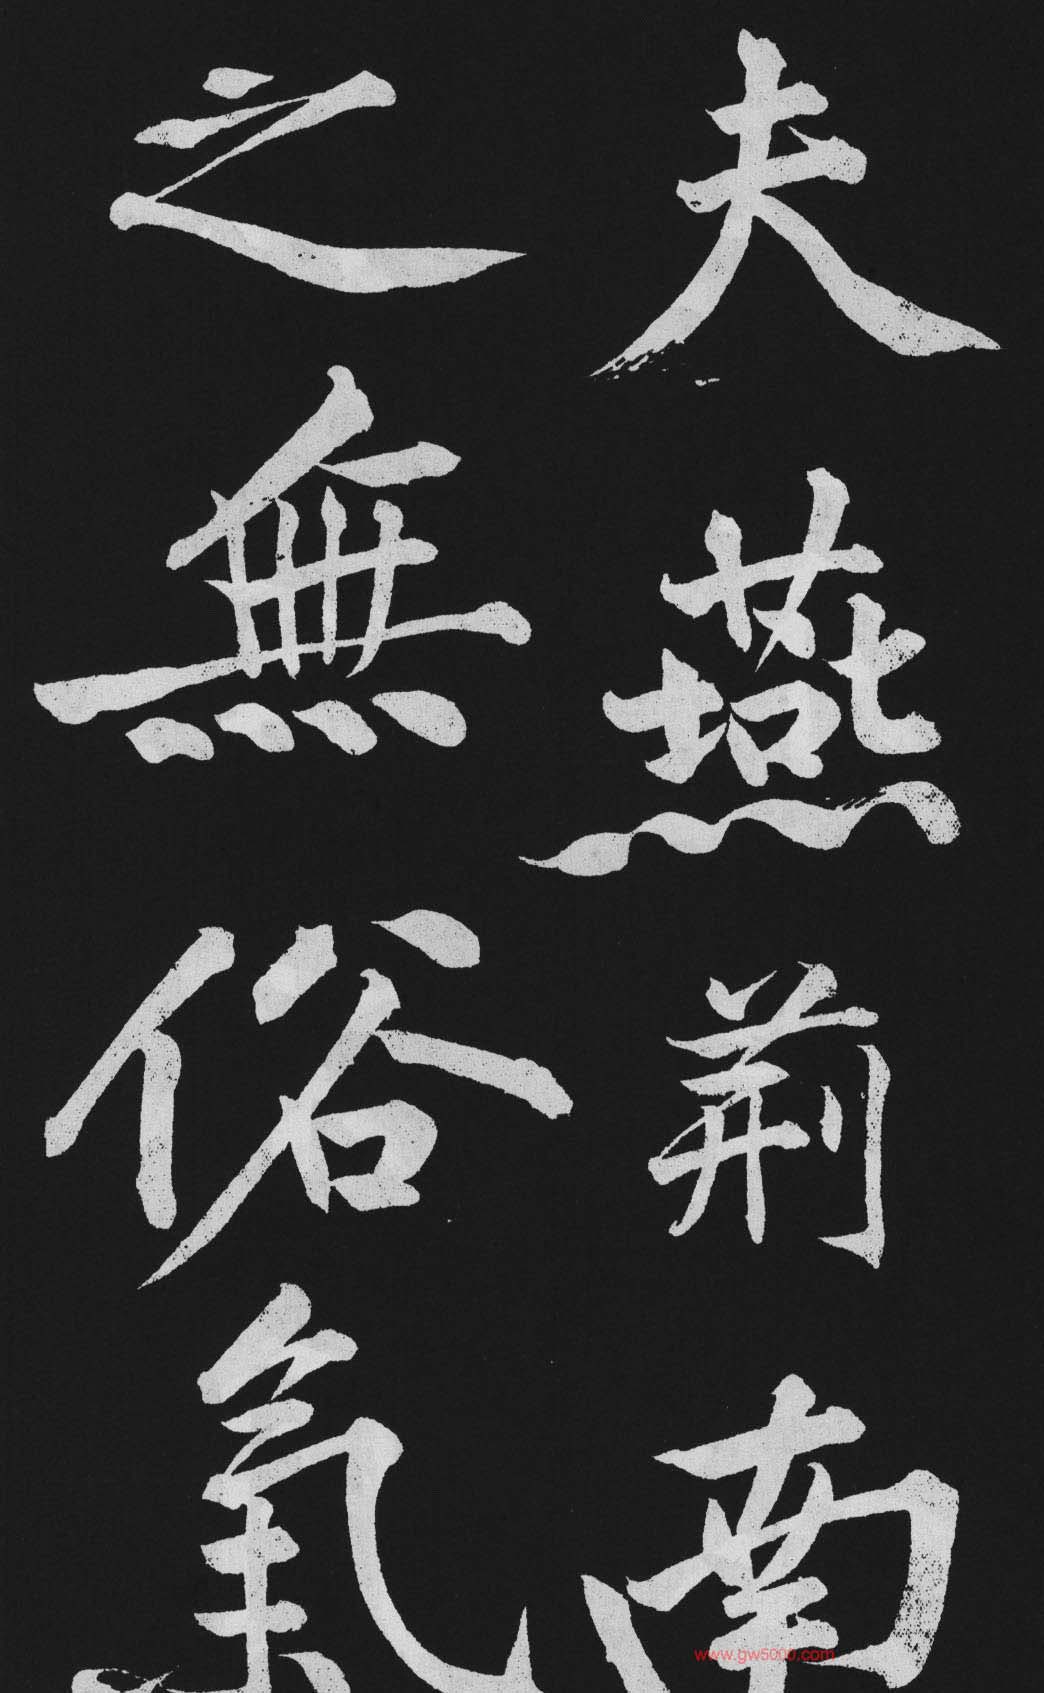 夫燕荊南
之無俗氣
www.gw5000.com